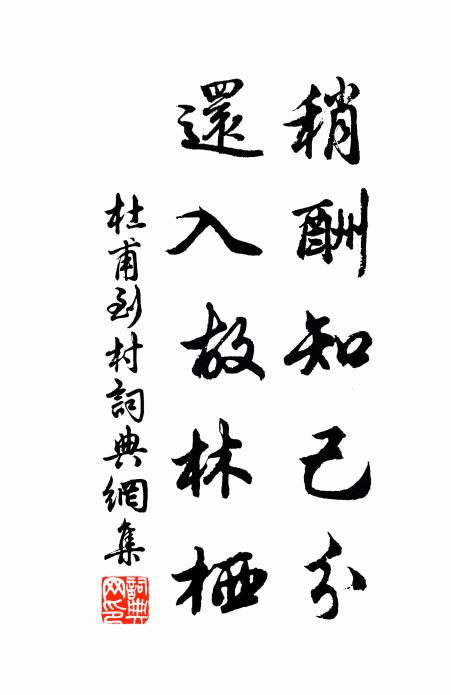 稍酬知己分
還入故林栖
杜甫到村詞典網集
詞典网印